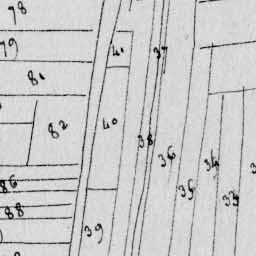 78
79
41
37
81
40
82
38
36
34
86
35
34
88
39